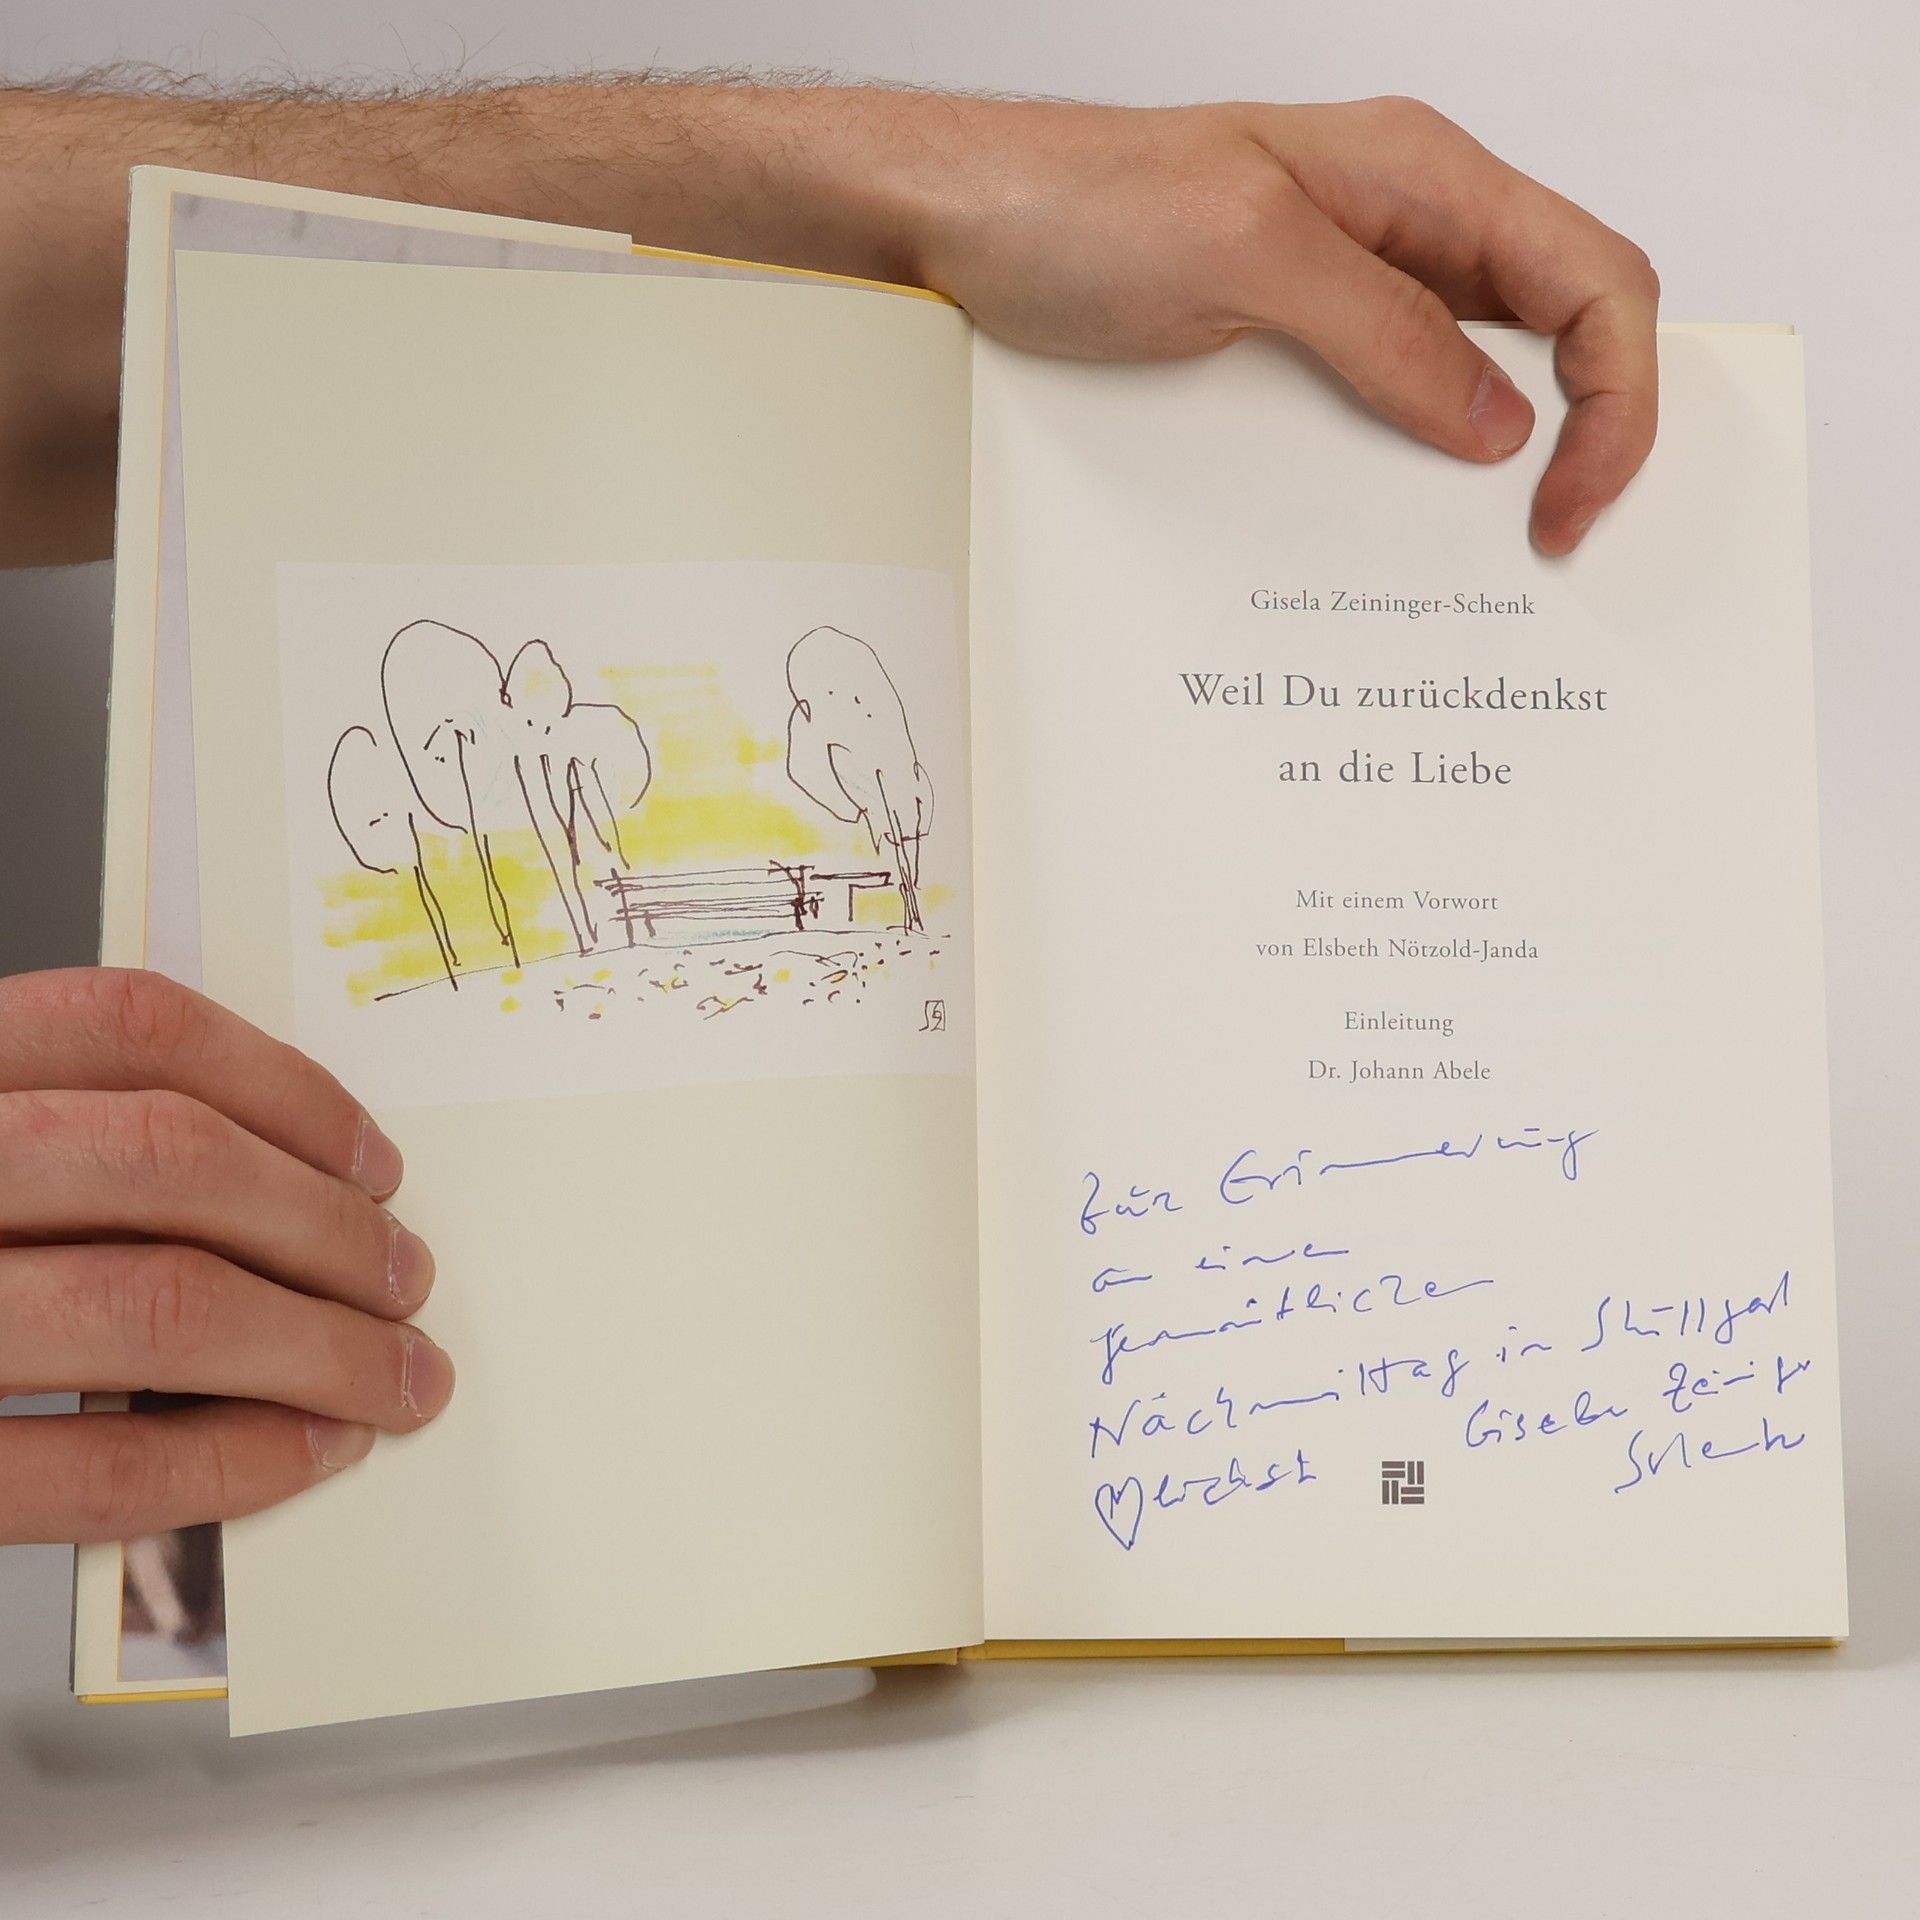 Gisela Zeininger-Schenk
Weil Du zurückdenkst
an die Liebe
Mit einem Vorwort
von Elsbeth Nötzold-Janda
Einleitung
Dr. Johann Abele
Zur Erinnerung
an einen
gemütlichen
Nachmittag in Stuttgart
Herzlichst
Gisela Zeininger
Schenk